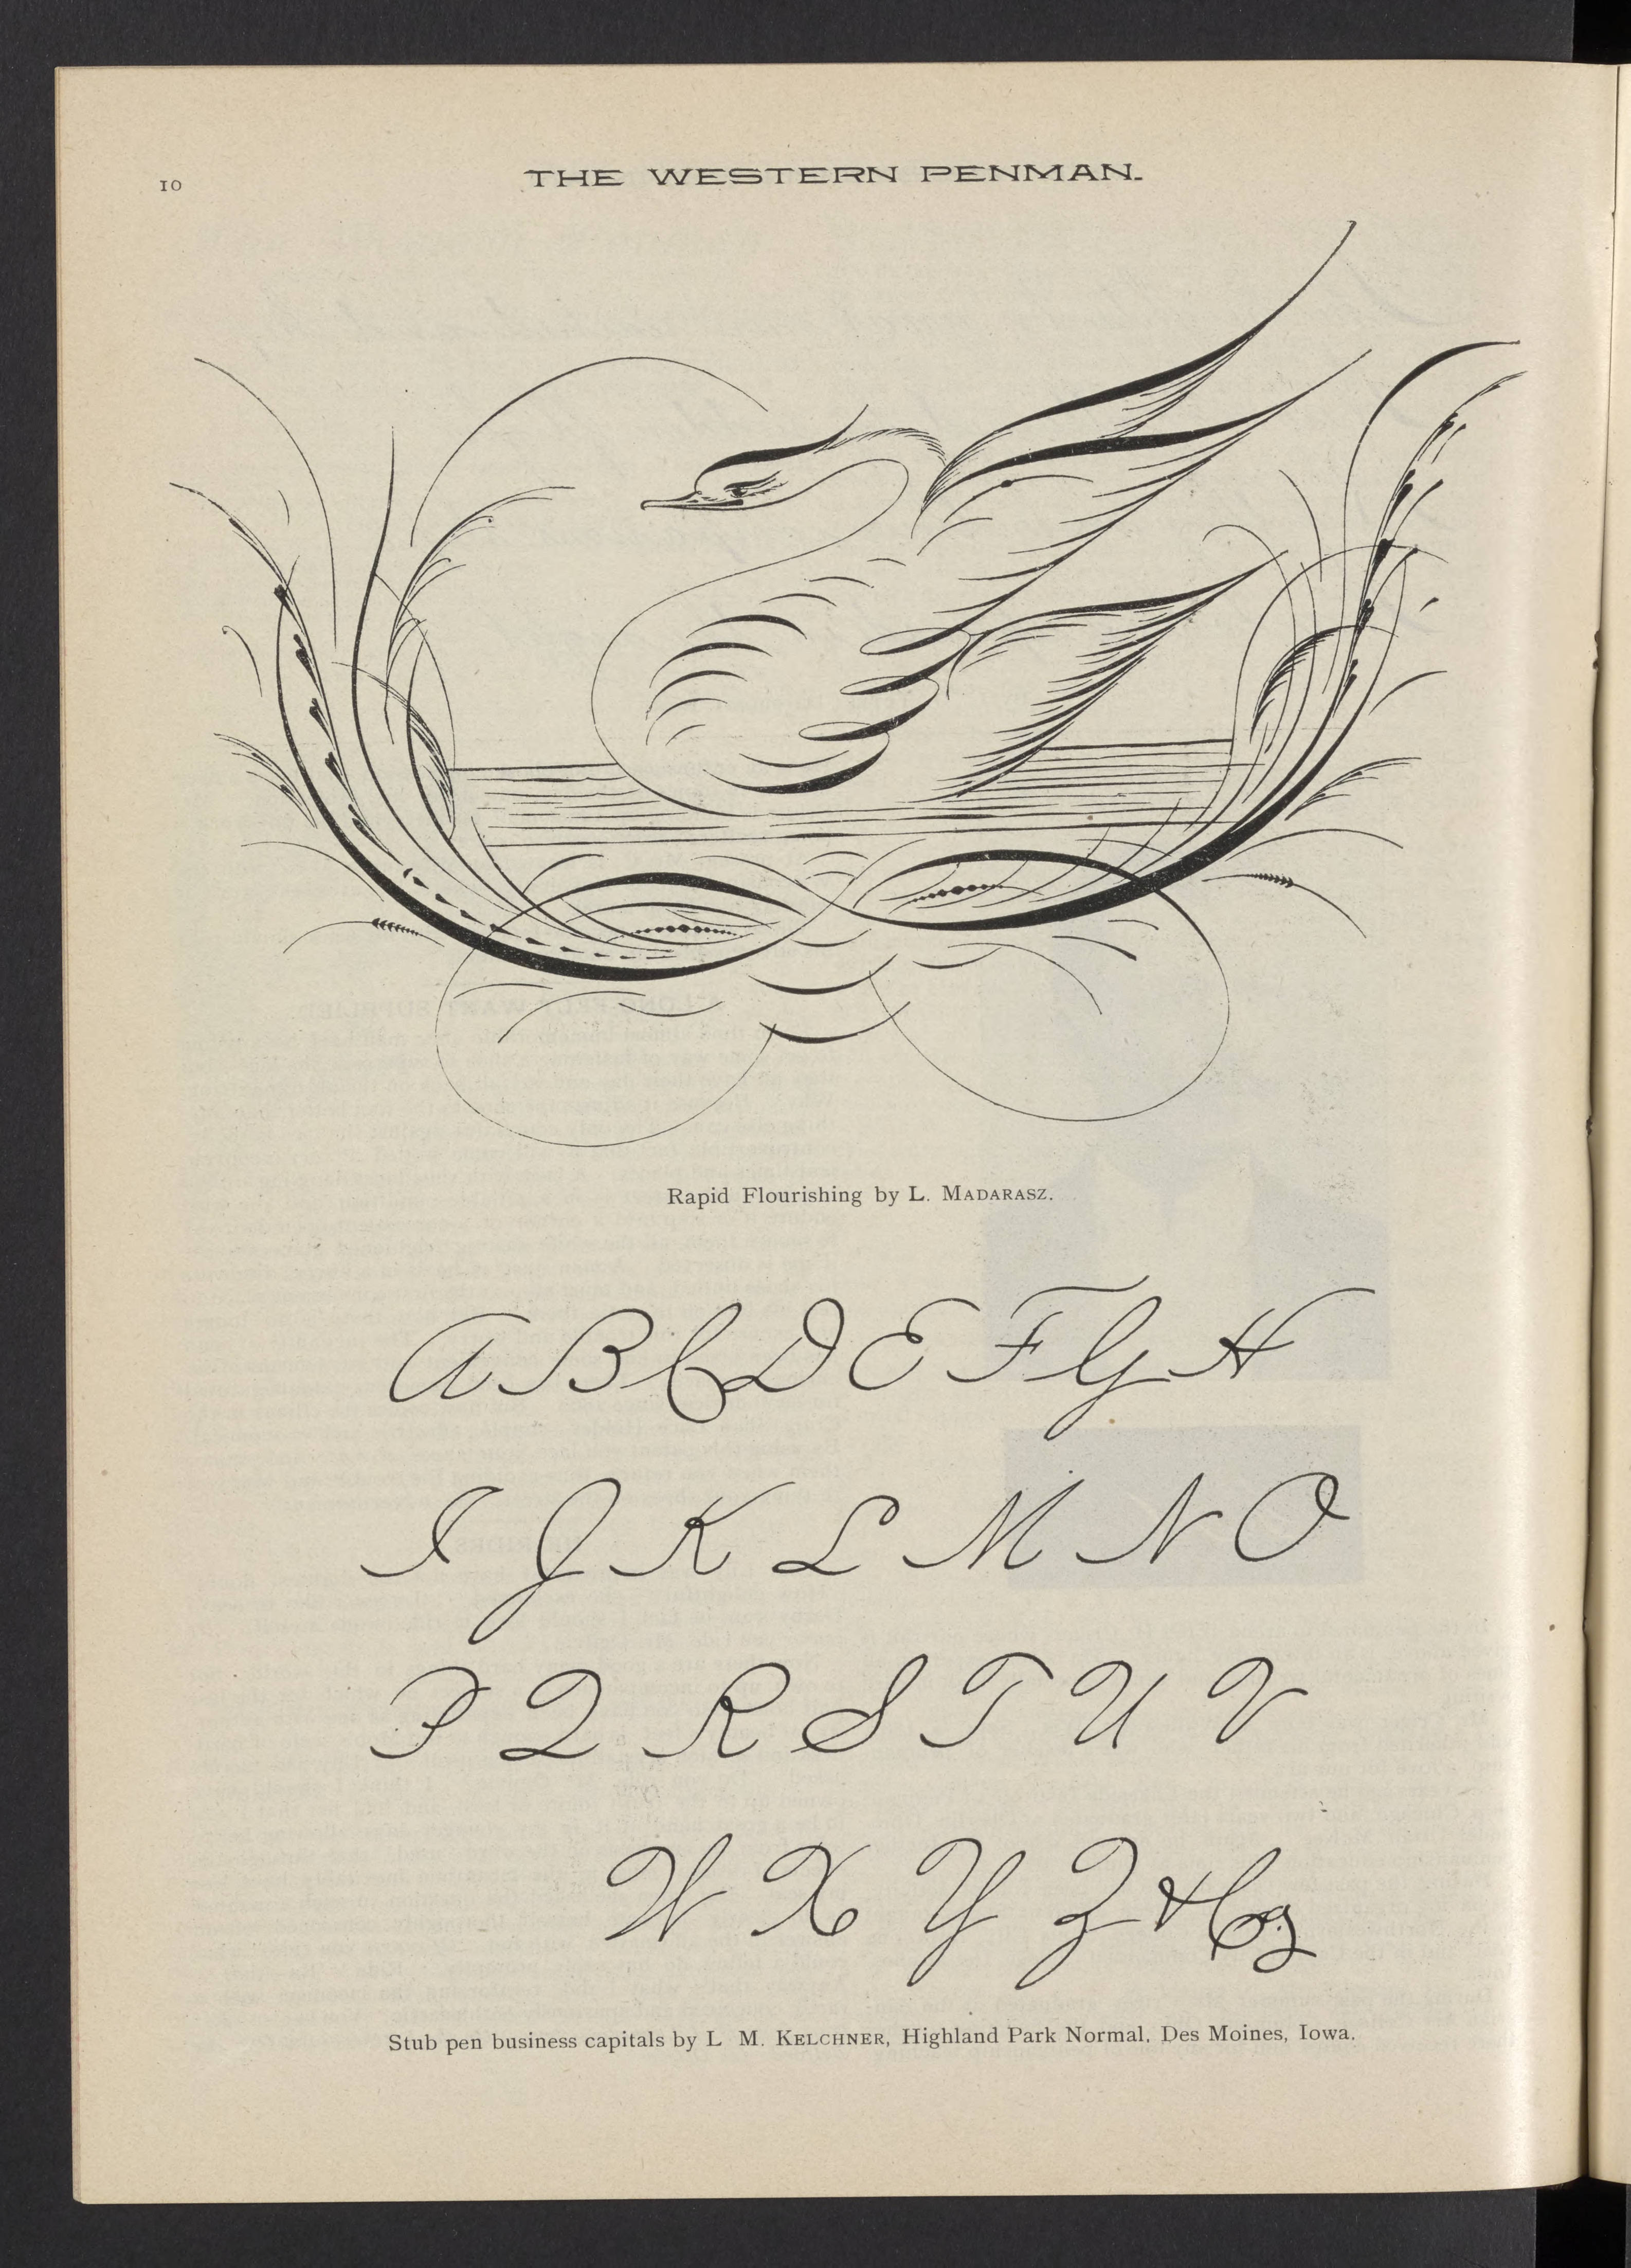 10
THE WESTERN PENMAN.
Rapid Flourishing by L. MADARASZ.
A B C D E F G H
I J K L M N O
P Q R S T U V
W X Y Z &
Stub pen business capitals by L M. KELCHNER, Highland Park Normal, Des Moines, Iowa.